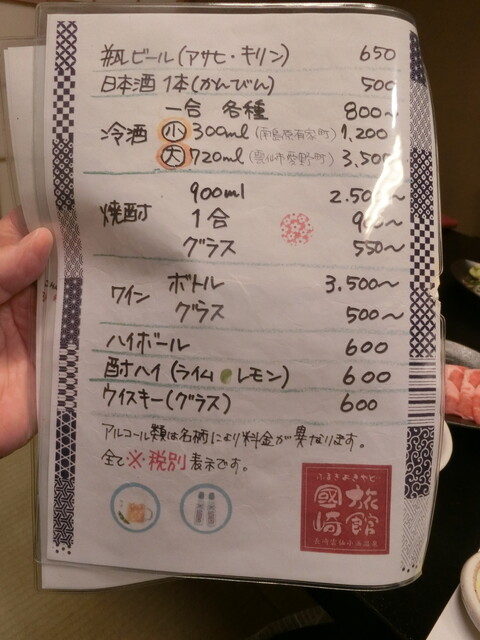 瓶ビール(アサヒ・キリン) 650
日本酒 1本(かんびん) 500
一合 各種 800〜
冷酒 小 300ml (南島原有家町) 1,200
大 720ml (雲仙市愛野町) 3,500
焼酎 900ml 2.500〜
1合 900〜
グラス 550〜
ワイン ボトル 3.500〜
グラス 500〜
ハイボール 600
酎ハイ(ライム レモン) 600
ウイスキー(グラス) 600
アルコール類は名柄により料金が異なります。
全て※税別表示です。
ふるきよきやど
旅館
國崎
長崎雲仙小浜温泉